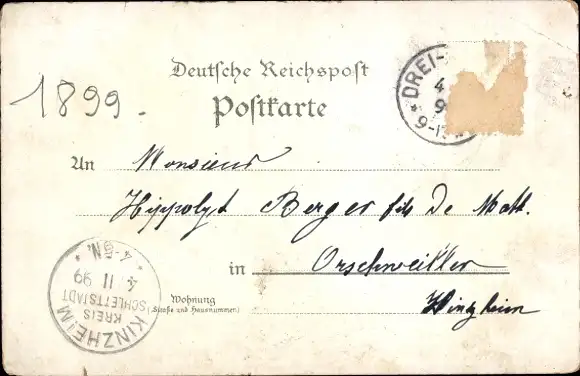 Deutsche Reichspost
Postkarte
1899.
DREI-
4
9
9-1
An Monsieur
Hippolyt Berger fils De Matt.
in Orschweiller
Wohnung
(Straße und Hausnummer)
Kinzheim
KINZHEIM
KREIS
SCHLETTSTADT
4 11 99
4-5N.